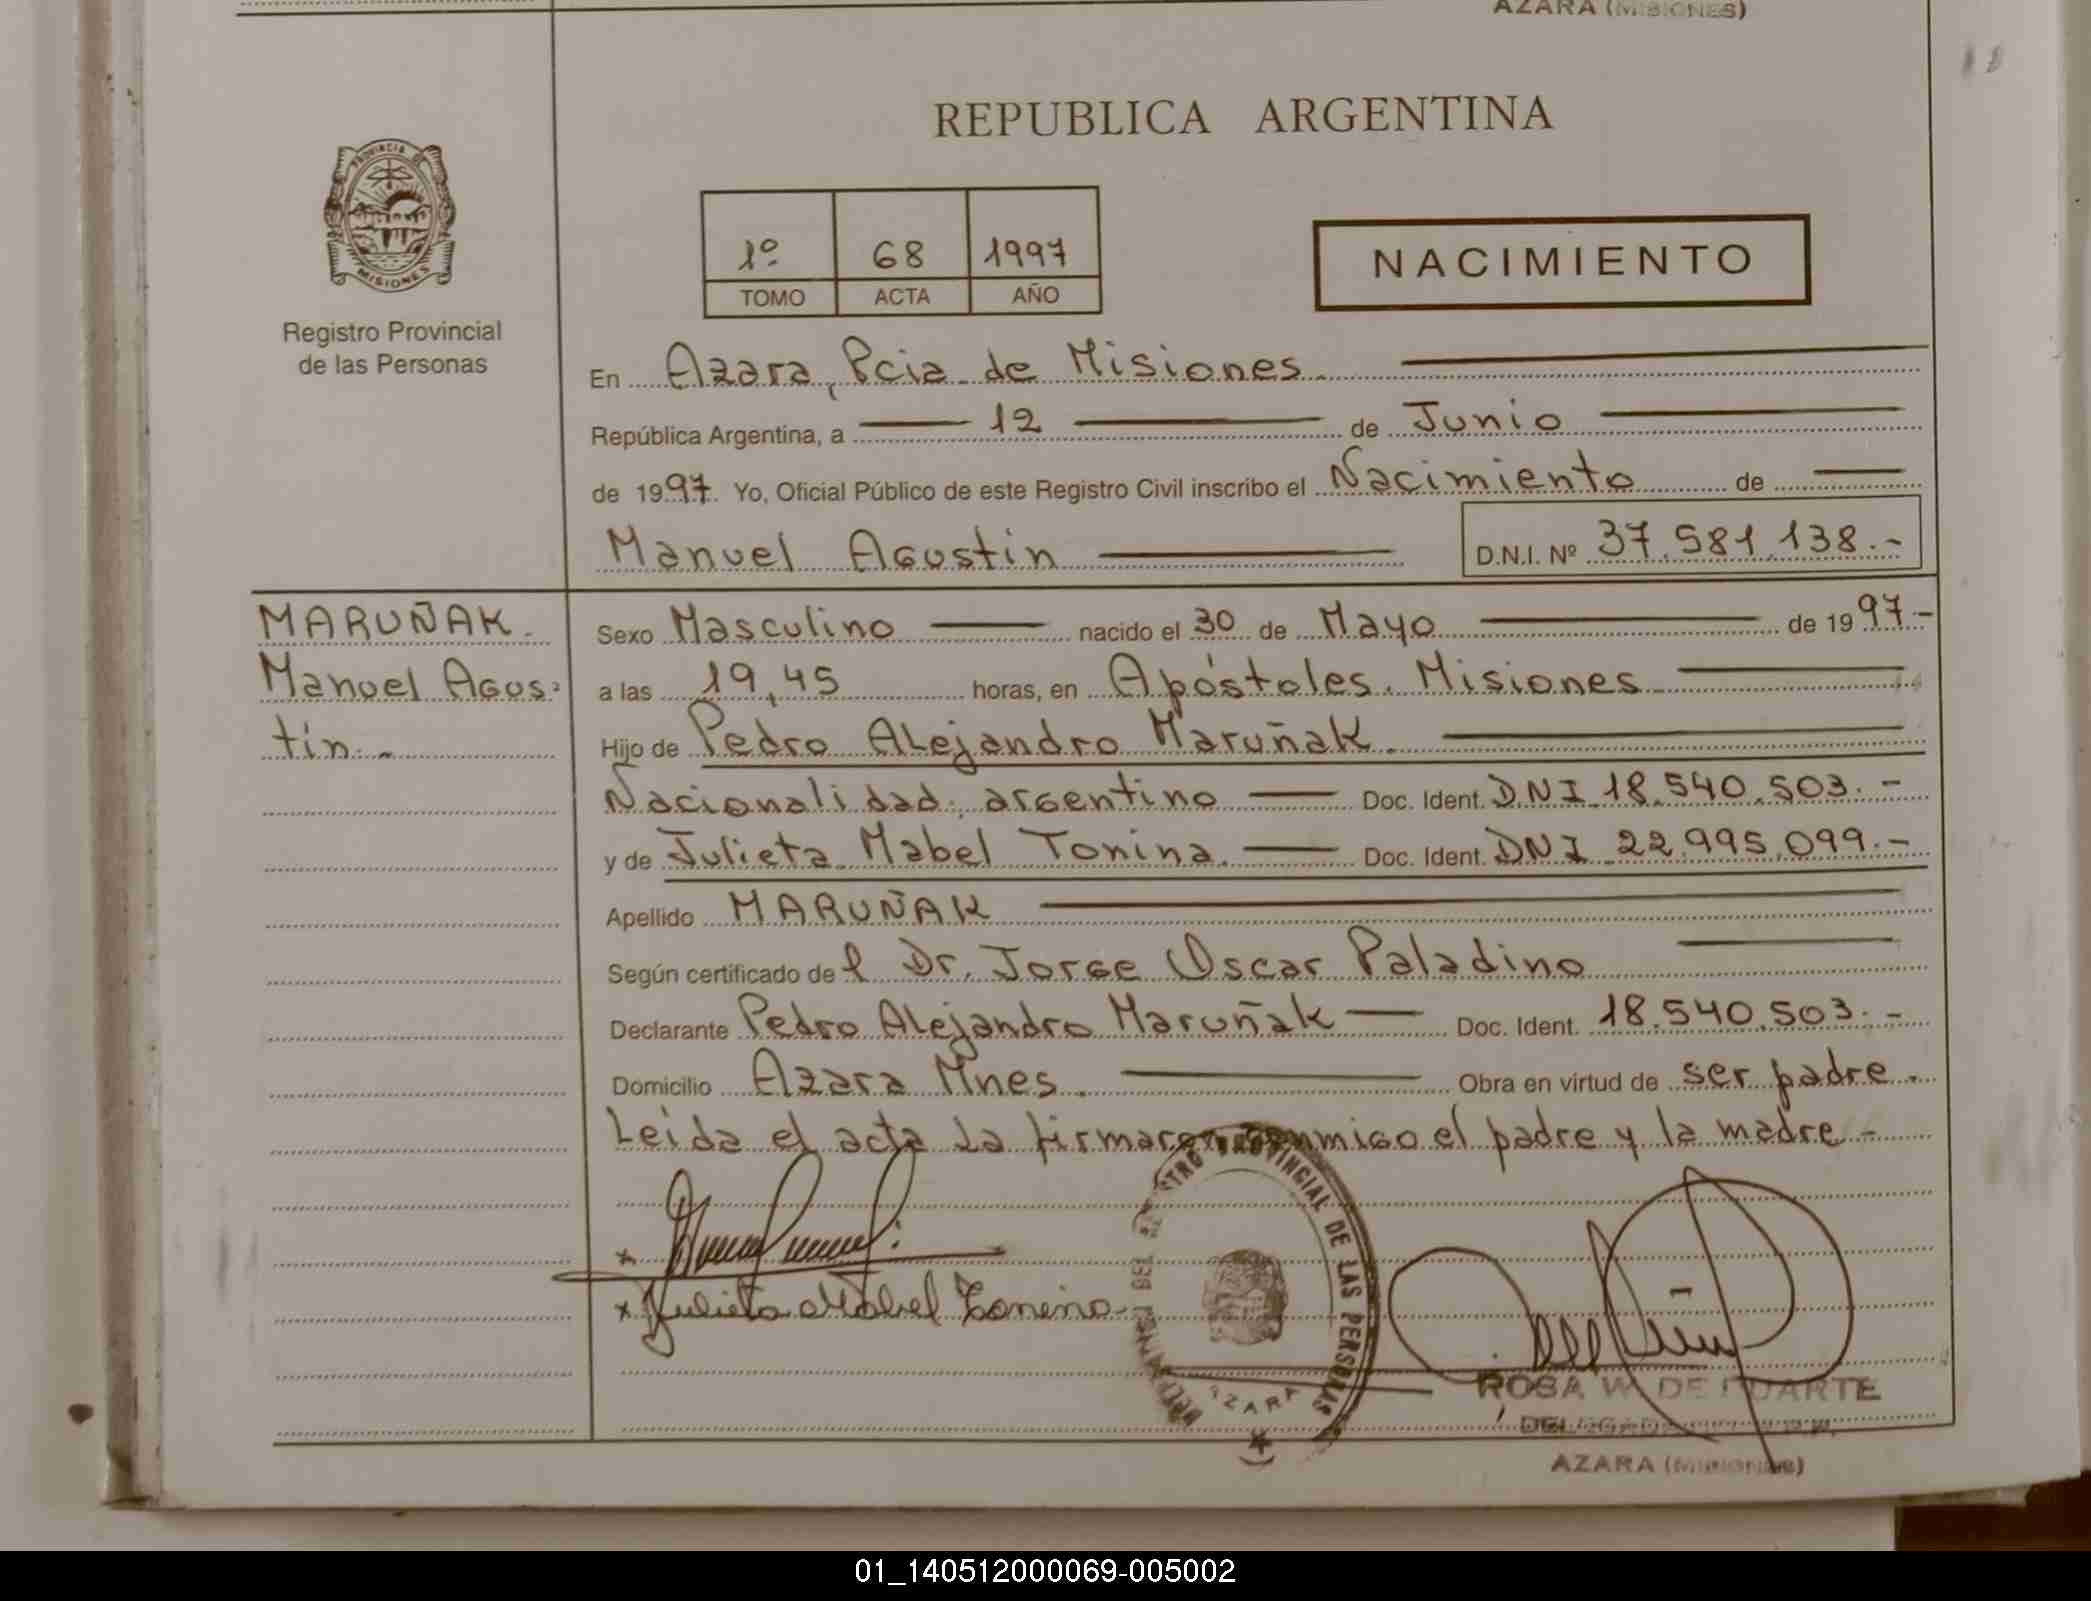 AZARA (MISIONES)
REPUBLICA ARGENTINA
PROVINCIA DE
MISIONES
Registro Provincial
de las Personas
1º 68 1997
TOMO ACTA AÑO
NACIMIENTO
En Azara, Pcia de Misiones.
República Argentina, a 12 de Junio
de 1997. Yo, Oficial Público de este Registro Civil inscribo el Nacimiento de
Manuel Agustin D.N.I. Nº 37.581.138.-
MARUÑAK.
Manuel Agus-
tin.-
Sexo Masculino nacido el 30 de Mayo de 1997-
a las 19,45 horas, en Apóstoles. Misiones
Hijo de Pedro Alejandro Maruñak.
Nacionalidad; argentino Doc. Ident. DNI 18.540.503.-
y de Julieta Mabel Tonina. Doc. Ident. DNI 22.995.099.-
Apellido MARUÑAK
Según certificado del Dr. Jorge Oscar Paladino
Declarante Pedro Alejandro Maruñak Doc. Ident. 18.540.503.-
Domicilio Azara Mnes. Obra en virtud de ser padre.
Leída el acta la firmaron conmigo el padre y la madre-
x
x Julieta Mabel Tonina
PROVINCIAL DE LAS PERSONAS
AZARA
ROSA W. DE DUARTE
AZARA (MISIONES)
01_140512000069-005002